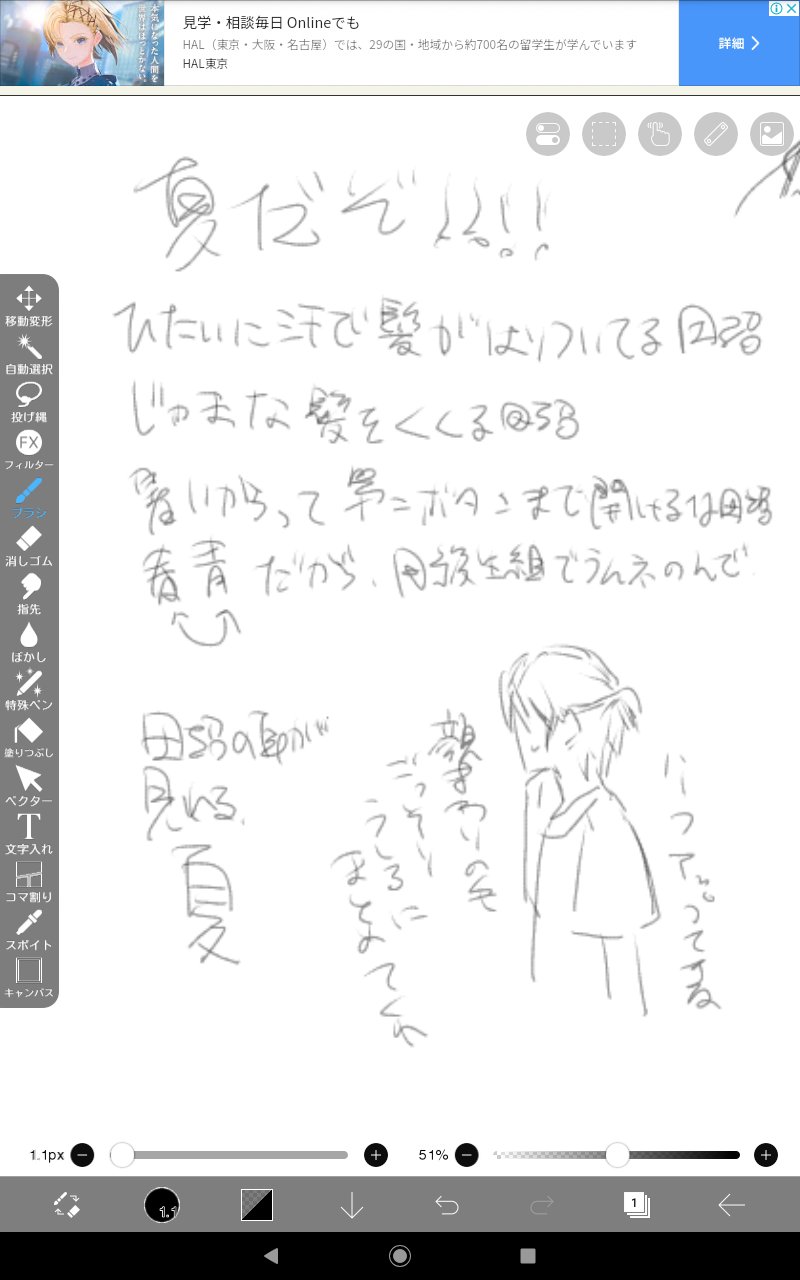 本気になった人間を
世界はほっとかない。
見学・相談毎日 Onlineでも
HAL（東京・大阪・名古屋）では、29の国・地域から約700名の留学生が学んでいます
HAL東京
詳細
夏だぞ!!!!
ひたいに汗で髪がはりついてる
じゃまな髪をくくる
暑いからって第二ボタンまで開けるな
青春だから、
が
見れる、
夏
顔まわりの毛
ごっそり
うしろに
まとめてくれ
ってる
移動変形
自動選択
投げ縄
FX
フィルター
ブラシ
消しゴム
指先
ぼかし
特殊ペン
塗りつぶし
ベクター
T
文字入れ
コマ割り
スポイト
キャンバス
1.1px
51%
1.1
1